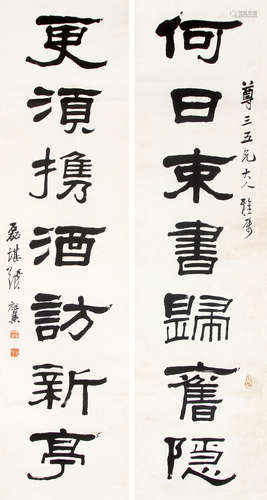 何日束書歸舊隱
尊三五兄大人雅屬
更須攜酒訪新亭
磊堪張